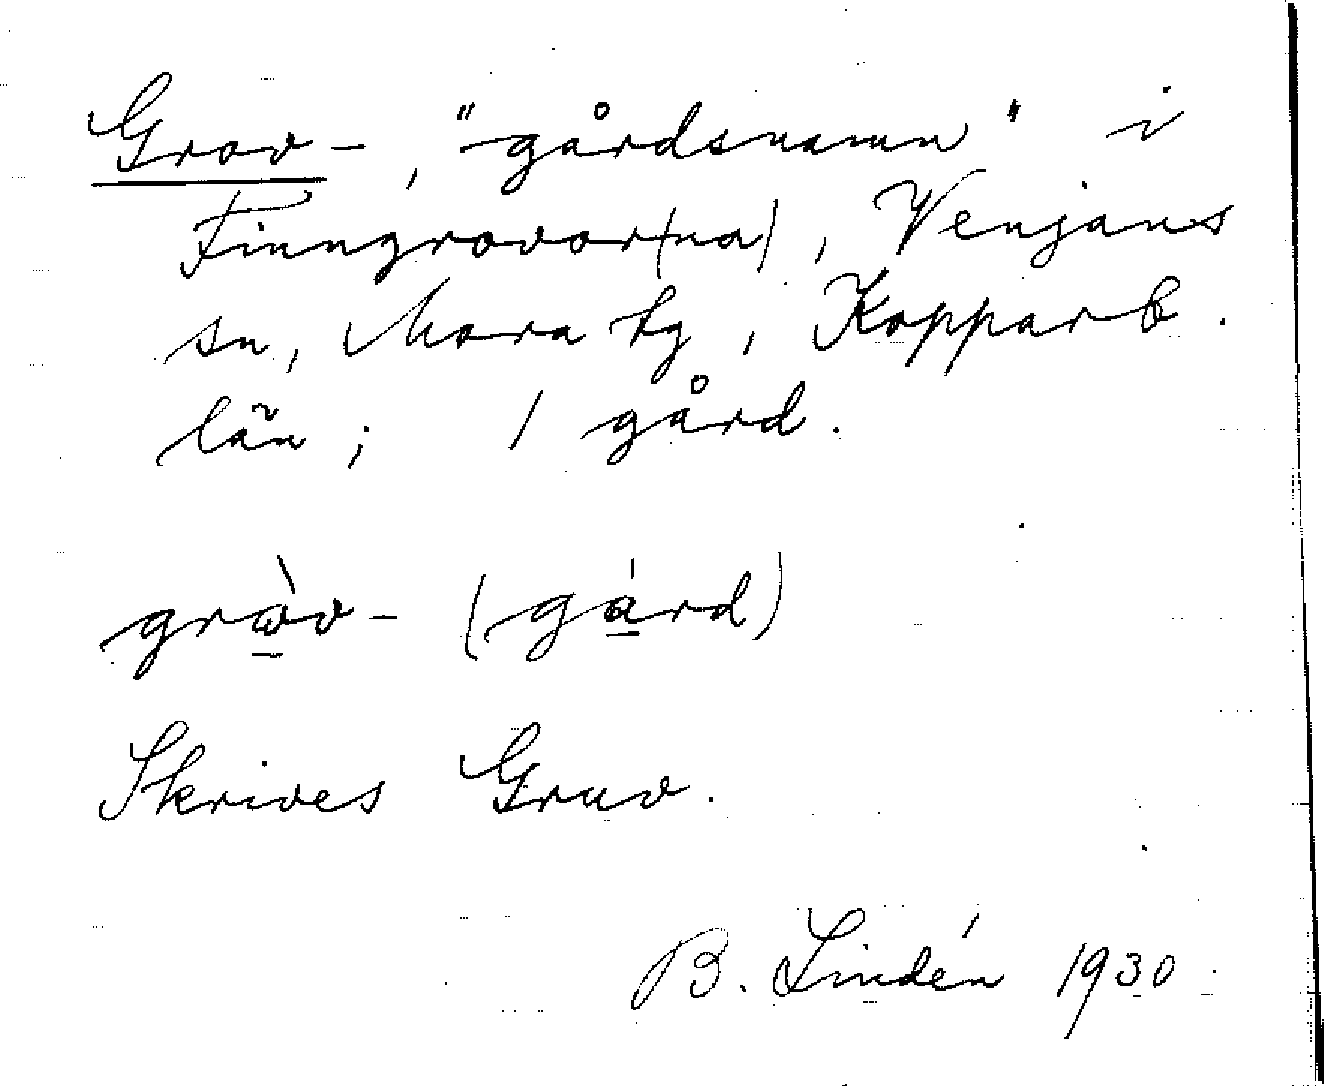 Grov-, "gårdsnamn" i
Finngrovor(na), Venjans
sn, Mora tg, Kopparb.
län; 1 gård.
gròv- (gárd)
Skrives Gruv.
B. Lindén 1930